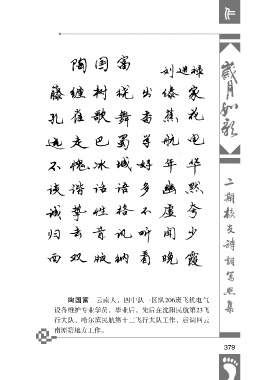 作
陶国富
刘进禄
藤缠树搅出傣家
孔雀歌舞西蕉花
远走巴蜀学航电
不愧冰城好年华
谈谐话语多幽默
诚挚性格不虚夸
归去昔风听闻少
而双版纳看晚霞
陶国富 云南人，四中队一区队206班飞机电气
设备维护专业学员。毕业后，先后在沈阳民航第23飞
行大队、哈尔滨民航第十二飞行大队工作，后调回云
南原籍地方工作。
岁月如歌
二期校友诗词写照集
379